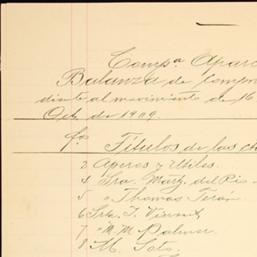 Compª Apar
Balanza de Compro
diente al movimiento de 16
Oct de 1909.
fºs Títulos de las c
2 Aperos y Utiles.
4 Sra. Maty. del Rio
5 " Thomas Terán
6 Srta. T.
7 " M. M. Palmer
8 M. Soto